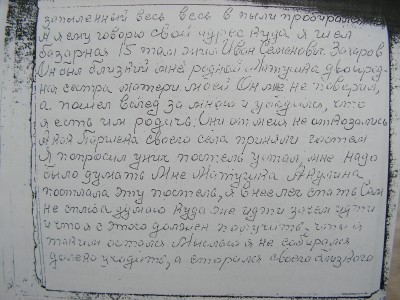 запыленный весь весь в пыли пробирался
А я ему говорю свой курс куда я шел
базарная 15 там жил Иван Семенович Захаров
Он был близкий мне родной Матушка двоюрод-
ная сестра матери моей Он мне не поверил,
а пошел вслед за мною и убедился, что
я есть им родич. Они от меня не отказались
как Парнена своего села приняли гостем
Я попросил у них постель устал, мне надо
было думать Мне Матушка Акулина
постлала эту постель, я в нее лег спать Сам
не сплю а думаю куда же идти зачем идти
и что я с этого должен получить, что я
таким остался Мыслью я не собирался
далеко уходить, а старался своего близкого